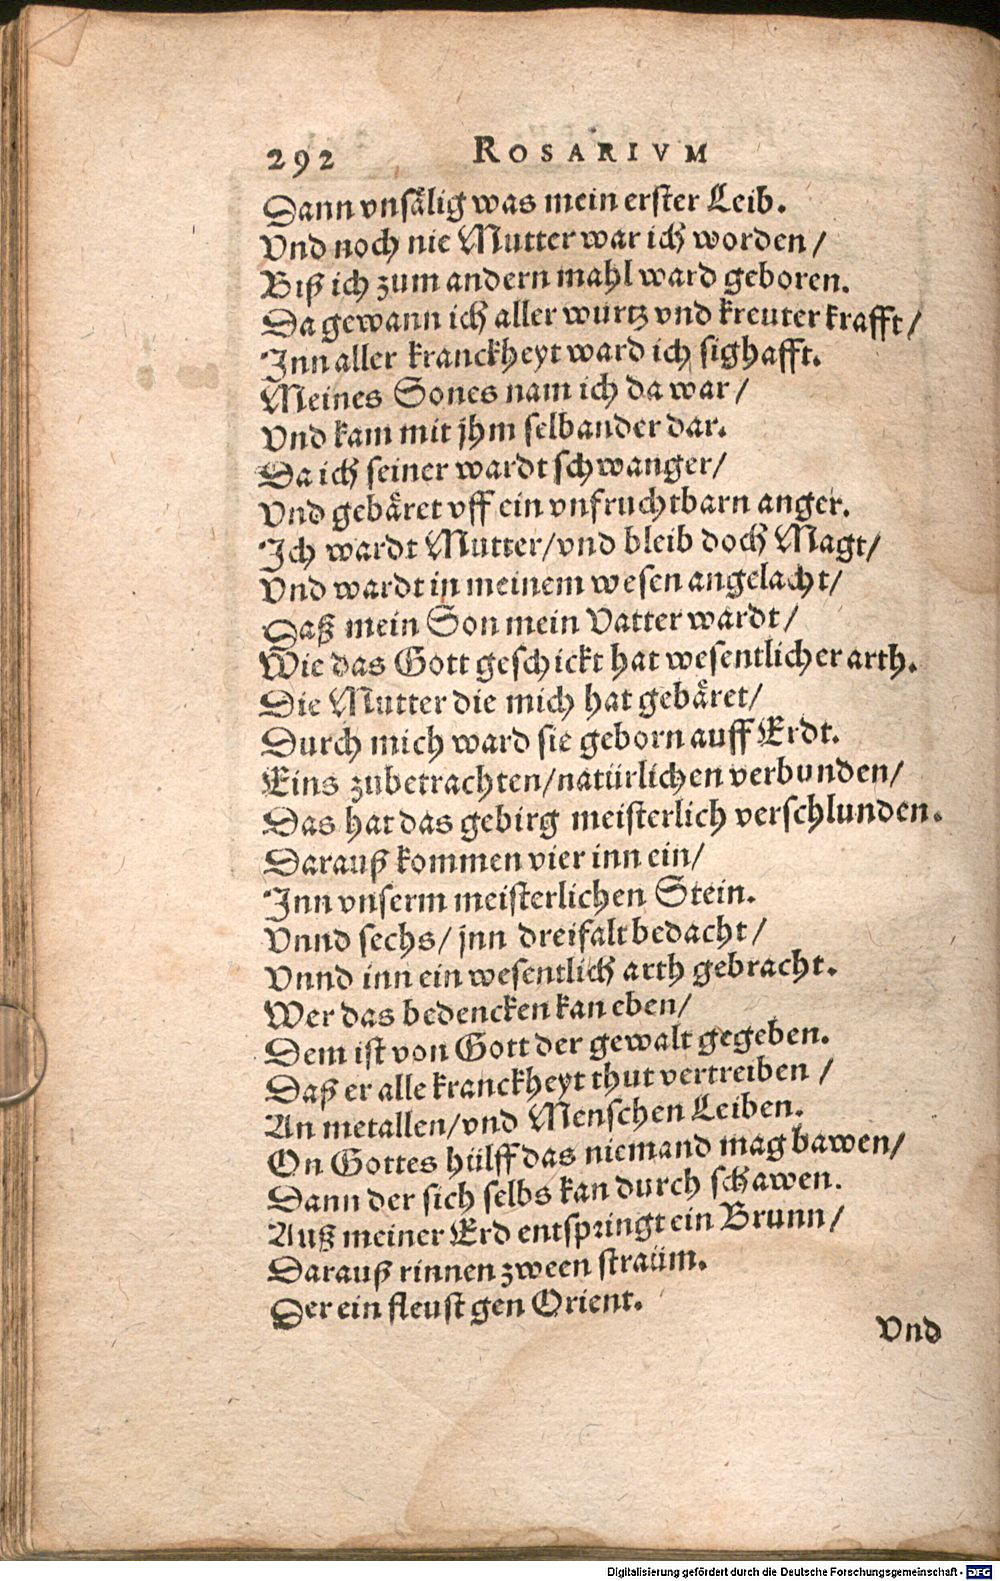 292 ROSARIVM
Dann vnsålig was mein erster Leib.
Vnd noch nie Mutter war ich worden/
Biß ich zum andern mahl ward geboren.
Da gewann ich aller wurtz vnd kreuter krafft/
Inn aller kranckheyt ward ich sighafft.
Meines Sones nam ich da war/
Vnd kam mit jhm selbander dar.
Da ich seiner wardt schwanger/
Vnd gebåret vff ein vnfruchtbarn anger.
Ich wardt Mutter/vnd bleib doch Magt/
Vnd wardt in meinem wesen angelacht/
Daß mein Son mein Vatter wardt/
Wie das Gott geschickt hat wesentlicher arth.
Die Mutter die mich hat gebåret/
Durch mich ward sie geborn auff Erdt.
Eins zubetrachten/natürlichen verbunden/
Das hat das gebirg meisterlich verschlunden.
Darauß kommen vier inn ein/
Inn vnserm meisterlichen Stein.
Vnnd sechs/ jnn dreifalt bedacht/
Vnnd inn ein wesentlich arth gebracht.
Wer das bedencken kan eben/
Dem ist von Gott der gewalt gegeben.
Daß er alle kranckheyt thut vertreiben /
An metallen/vnd Menschen Leiben.
On Gottes hülff das niemand mag bawen/
Dann der sich selbs kan durch schawen.
Auß meiner Erd entspringt ein Brunn/
Darauß rinnen zween straüm.
Der ein fleust gen Orient.
Vnd
Digitalisierung gefördert durch die Deutsche Forschungsgemeinschaft - DFG